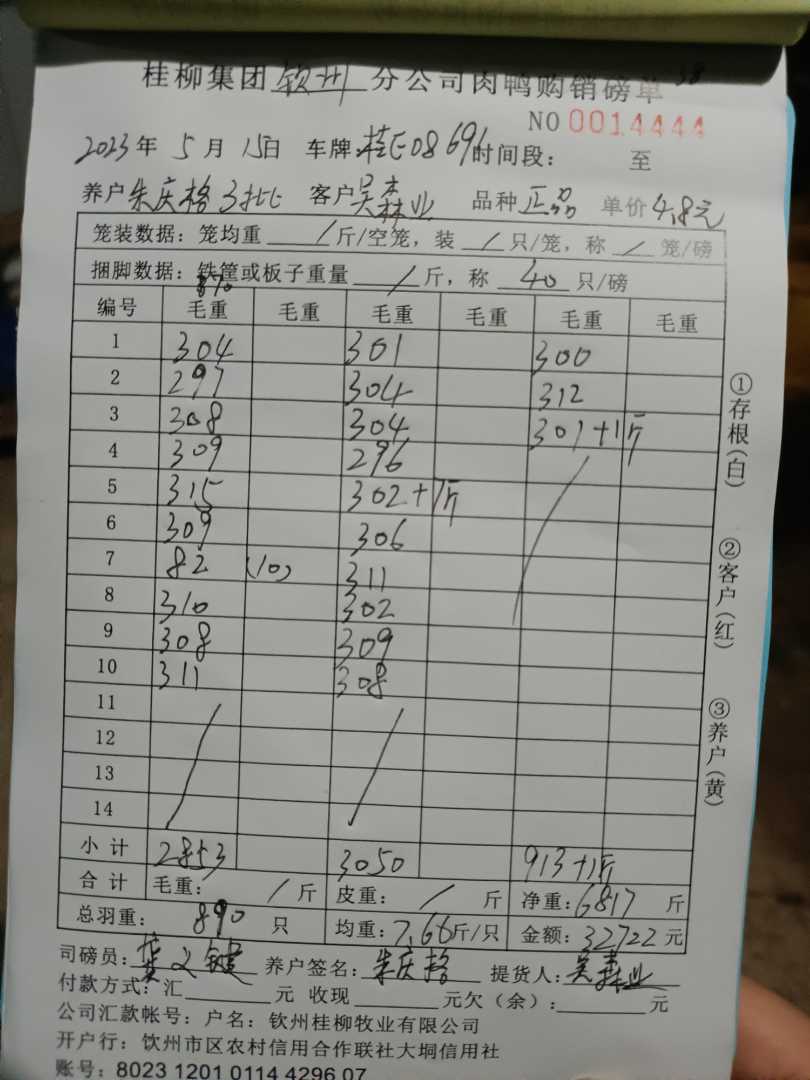 桂柳集团钦州分公司肉鸭购销磅单 38
NO 0014444
2023年 5月 15日 车牌:桂E08691时间段: 至
养户朱庆格3批 客户吴森业 品种正品 单价4.8元
笼装数据:笼均重 / 斤/空笼,装 / 只/笼,称 / 笼/磅
捆脚数据:铁筐或板子重量 / 斤,称 40 只/磅
编号 毛重 毛重 毛重 毛重 毛重 毛重
1 304 301 300
2 297 304 312
3 308 304 301+1斤
4 309 296
5 315 302+1斤
6 309 306
7 82 (10) 311
8 310 302
9 308 309
10 311 308
11
12
13
14
小计 2853 3050 913+1斤
合计 毛重: / 斤 皮重: / 斤 净重:6817 斤
总羽重: 890 只 均重:7.66斤/只 金额:32722元
司磅员: 养户签名:朱庆格 提货人:吴森业
付款方式:汇 元 收现 元欠(余): 元
公司汇款帐号:户名:钦州桂柳牧业有限公司
开户行:钦州市区农村信用合作联社大垌信用社
账号:8023 1201 0114 4296 07
①存根(白)
②客户(红)
③养户(黄)